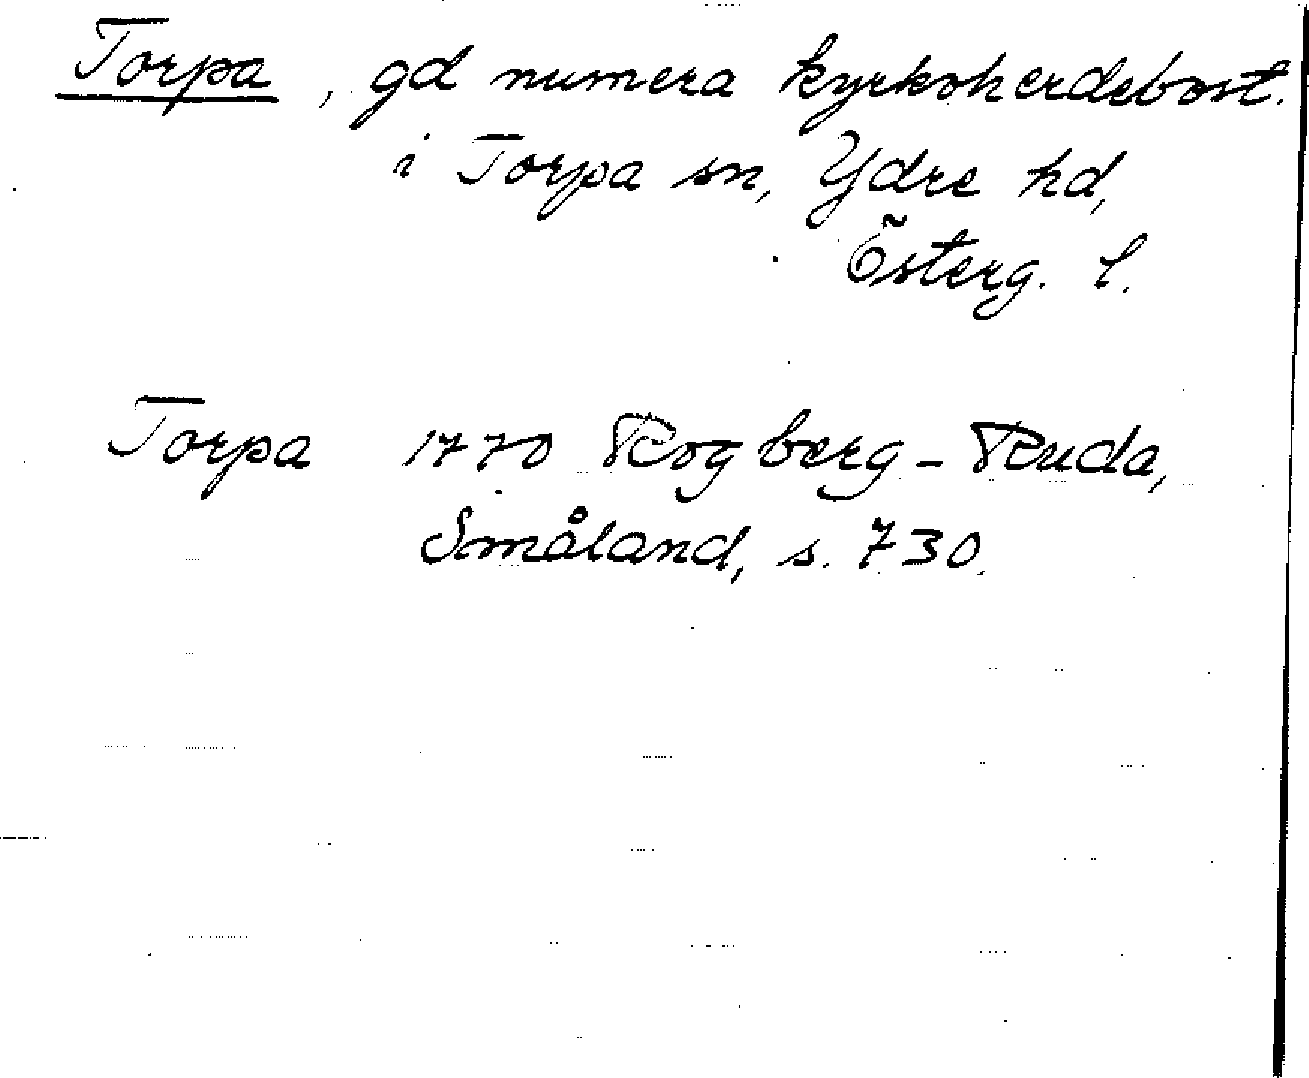 Torpa, gd numera kyrkoherdebost.
i Torpa sn, Ydre hd,
Österg. l.
Torpa 1770 Rogberg-Ruda,
Småland, s. 730.